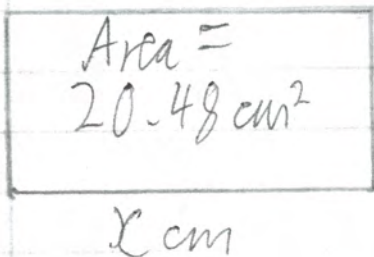 Area =
20.48 cm²
x cm